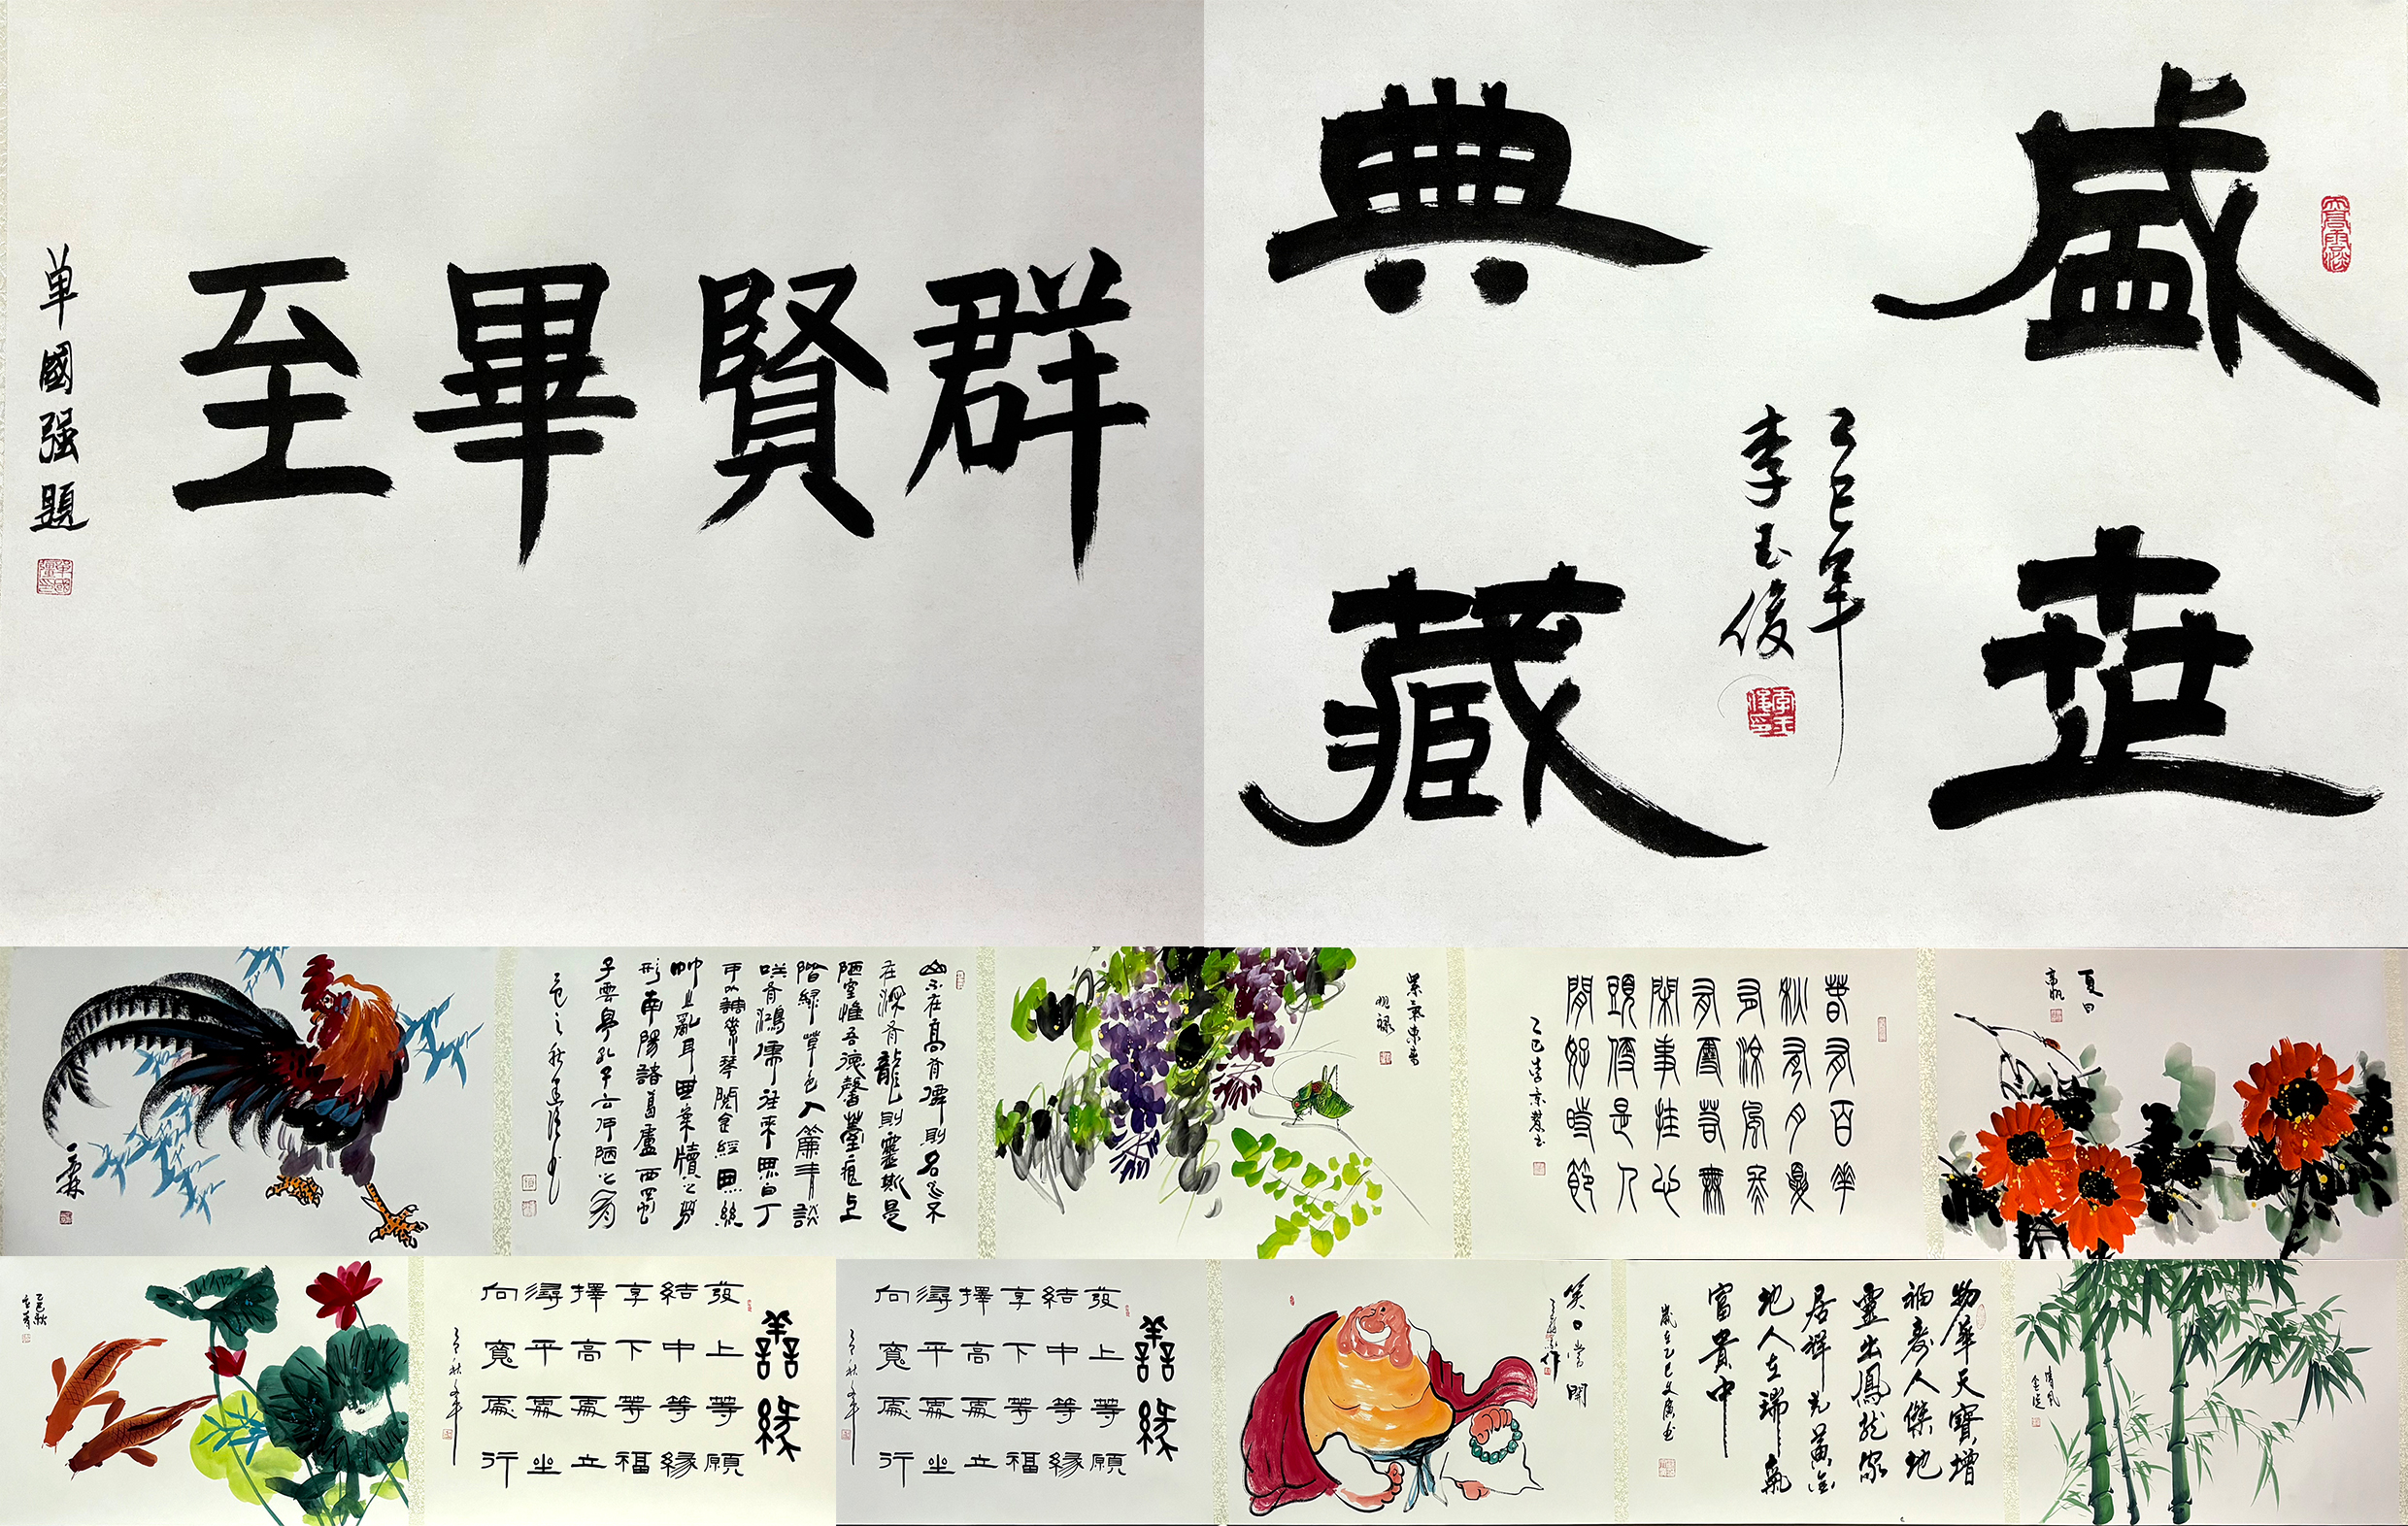 群賢畢至
单國强題
盛世
典藏
乙巳年
李玉俊
李玉俊印
山不在高有僊則名水不
在深有龍則靈斯是
陋室惟吾德馨薹痕上
階緑草色入簾青談
咲有鴻儒往來無白丁
可以調素琴閱金經無絲
竹之亂耳無案牘之勞
形南陽諸葛廬西蜀
子雲亭孔子云何陋之有
紫氣東来
春有百華
秋有月夏
有涼風冬
有雪若無
閑事挂心
頭便是人
間好時節
夏日
乙巳秋
善緣
發上等願
結中等緣
享下等福
擇高處立
尋平處坐
向寬處行
善緣
發上等願
結中等緣
享下等福
擇高處立
尋平處坐
向寬處行
笑口常開
物華天寶增
福壽人傑地
靈出鳳龍家
居祥光黃金
地人在瑞氣
富貴中
歲在乙巳文廣书
清風